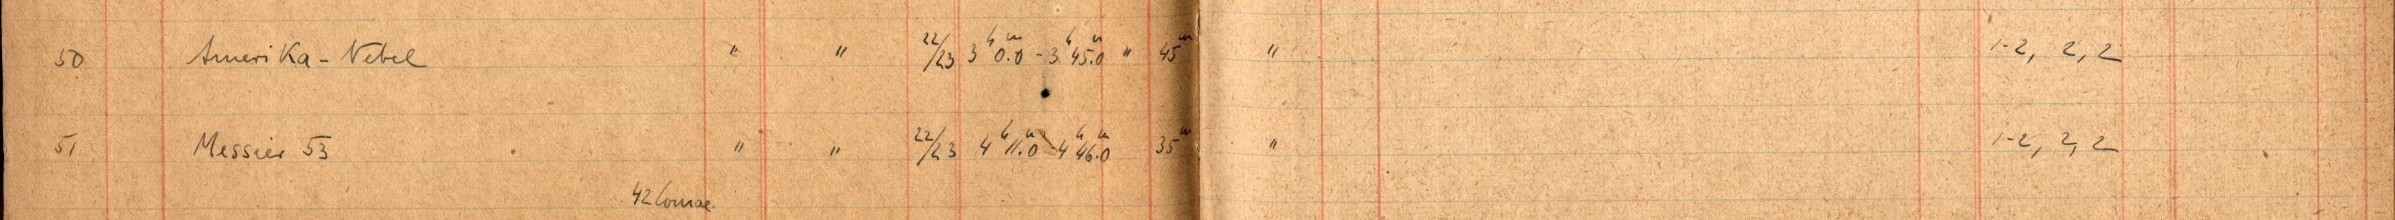 50 Amerika-Nebel " " 22/23 3h 0.0m - 3h 45.0m " 45m " 1-2, 2, 2
51 Messier 53 " " 22/23 4h 11.0m - 4h 46.0m 35m " 1-2, 2, 2
42 Comae